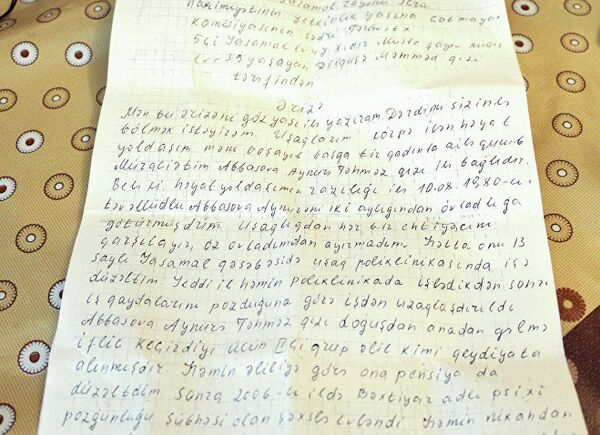 Yasamal rayonu İcra
Hakimiyyətinin yetkinlik yaşına çatmayan
komisiyasının sədri
5çi Yasamal Xıdır Mustafayev küçəsi
ev 39 yaşayan Məmməd qızı
tərəfindən
Ərizə
Mən bu ərizəni göz yaşı ilə yazıram Dərdimi sizinlə
bölmək istəyirəm. Uşaqlarım körpə ikən həyat
yoldaşım məni boşayıb başqa bir qadınla ailə qurub
Müraciətim Abbasova Aynurə Təhməz qızı ilə bağlıdır.
Belə ki, həyat yoldaşımın razılığı ilə 10.08.1980-ci
təvəllüdlü Abbasova Aynurəni iki aylığından övladlığa
götürmüşdüm. Uşaqlıqdan hər bir ehtiyacını
qarşılayır, öz övladımdan ayırmadım. Hətta onu 13
saylı Yasamal qəsəbəsidə uşaq poliklinikasında işə
düzəltdim. Yeddi il həmin poliklinikada işlədikdən sonra
iş qaydalarını pozduğuna görə işdən uzaqlaşdırıldı
Abbasova Aynurə Təhməz qızı doğuşdan anadan gəlmə
iflic keçirdiyi üçün IIçi qrup əlil kimi qeydiyyata
alınmışdır Həmin əlilliyə görə ona pensiya da
düzəltdim sonra 2006-cı ildə Bəxtiyar adlı psixi
pozğunluğu şübhəsi olan şəxslə evləndi Həmin nikahdan